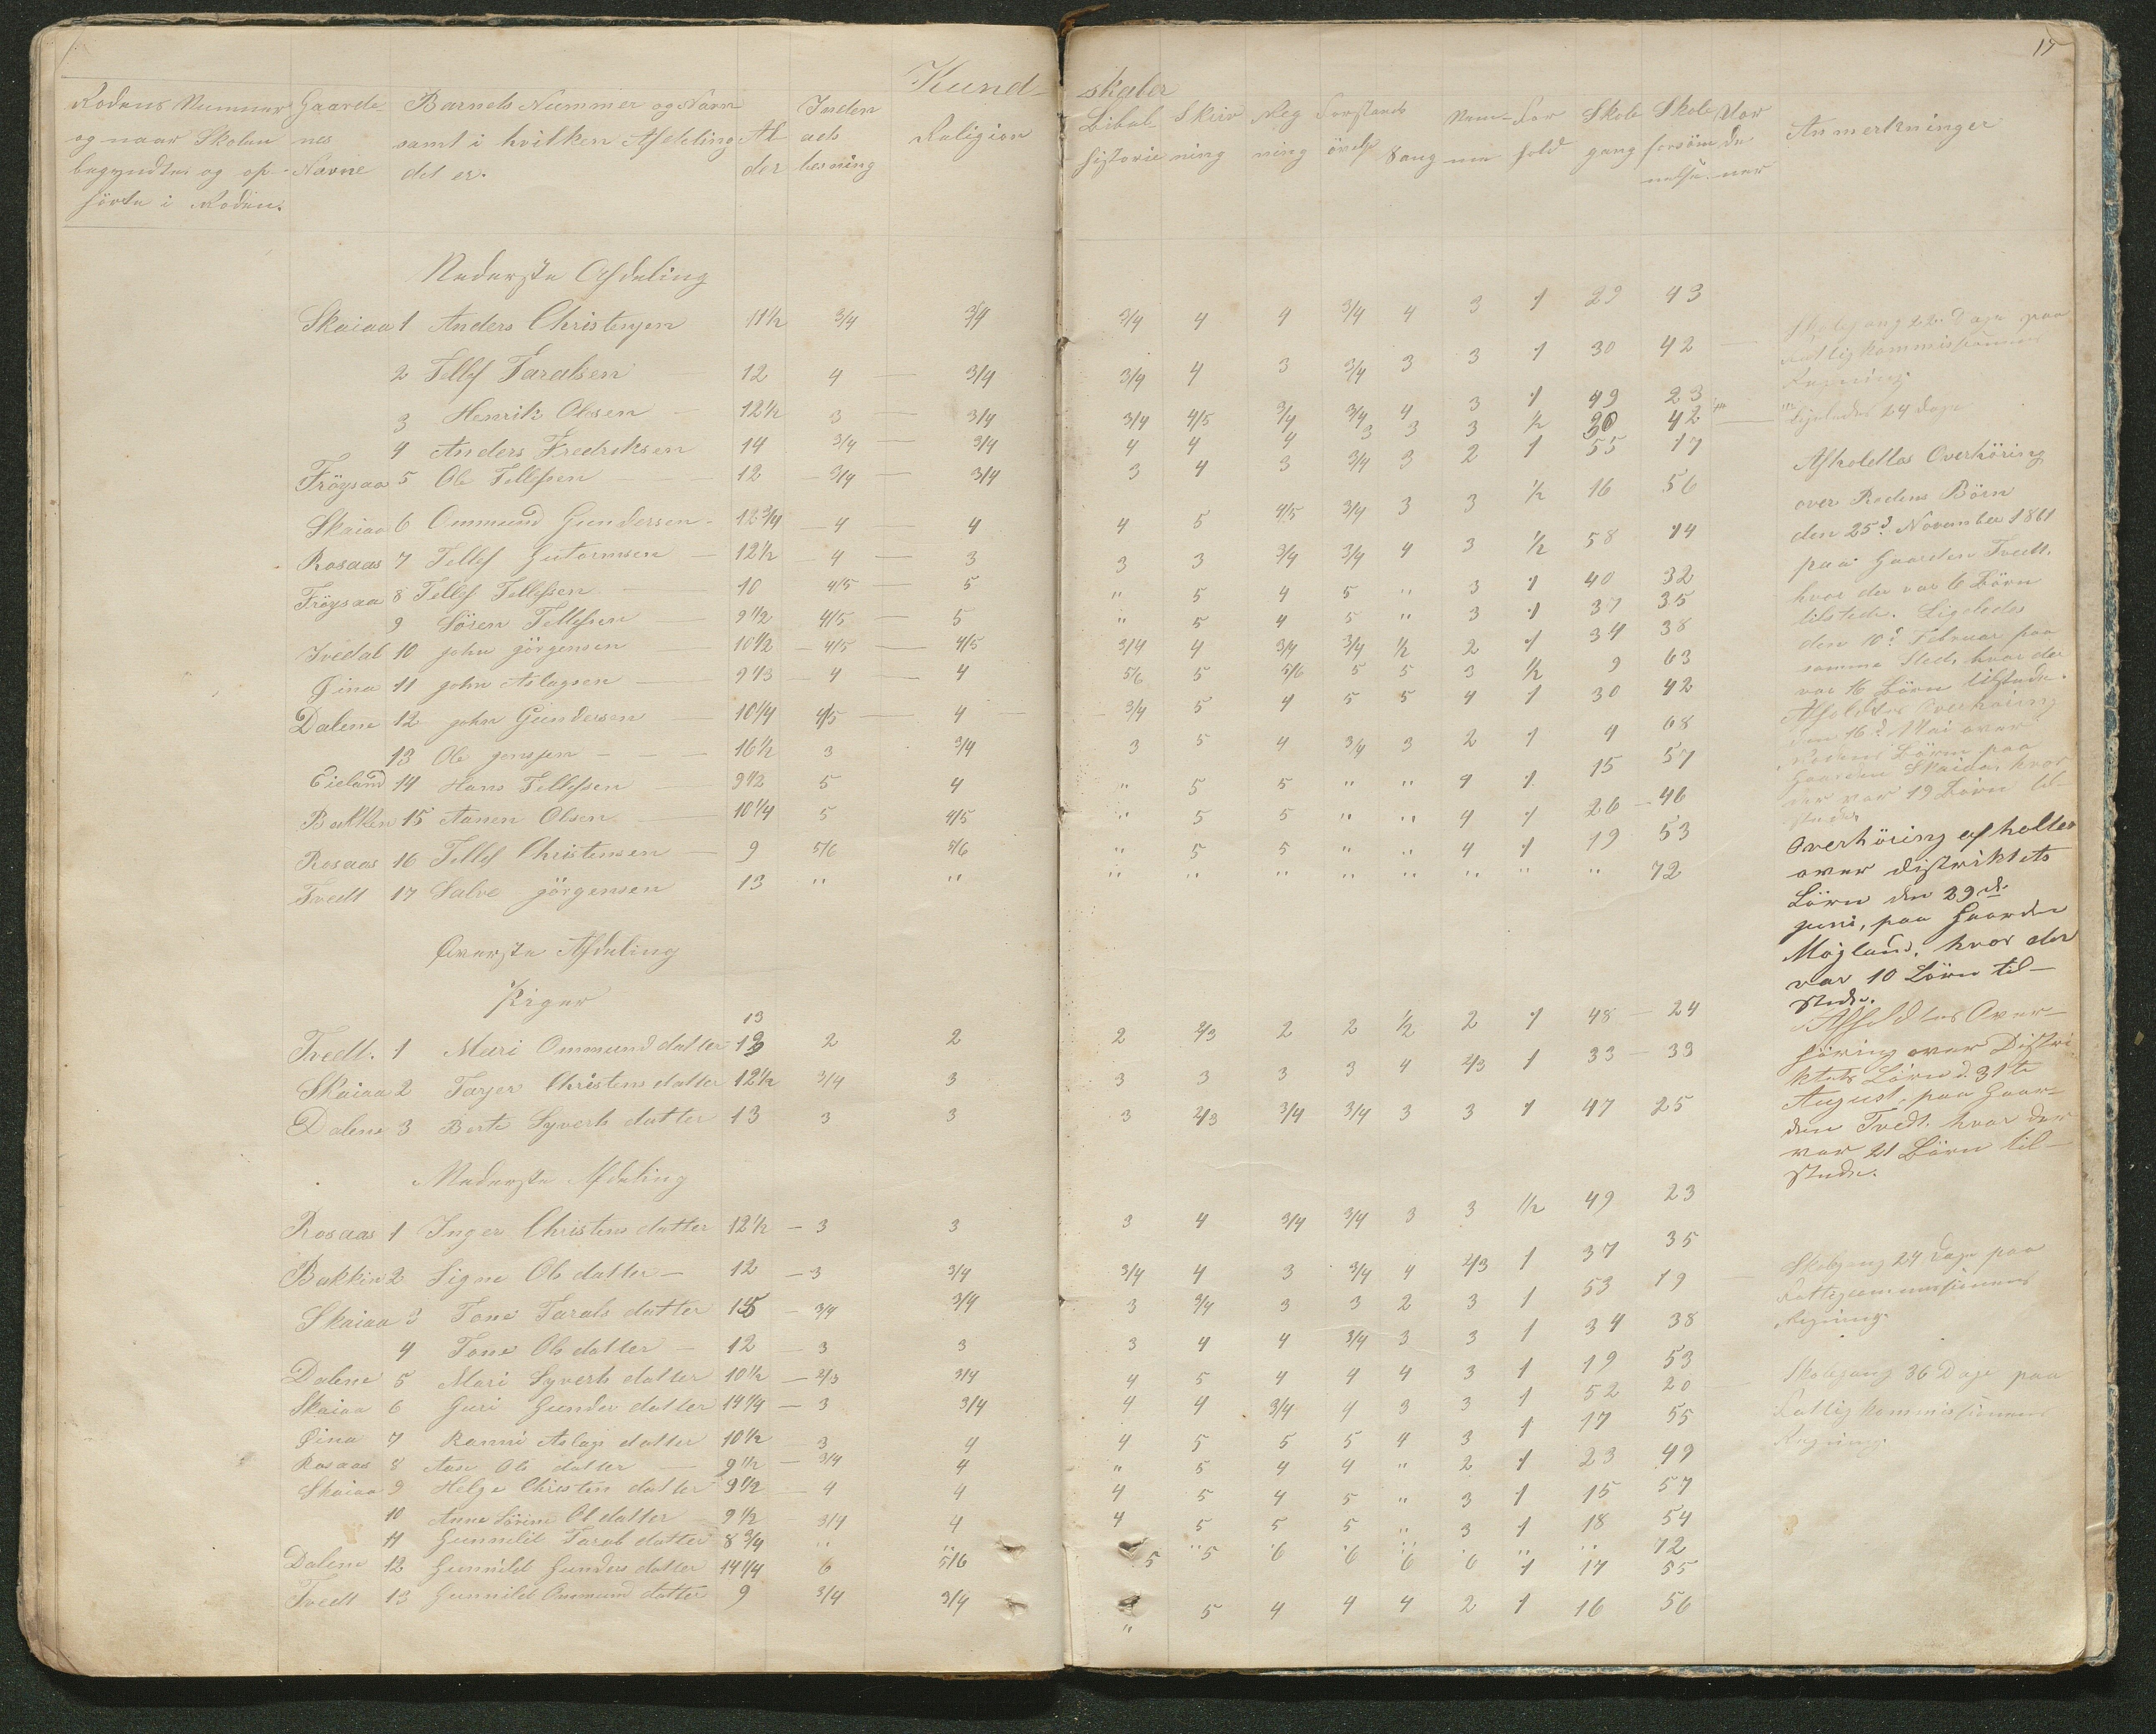 17
Kund- skaber
Rodens Nummer og naar Skolen begyndtes og op- hörte i Roden.
Gaarde nes Navne
Barnets Nummer og Navn samt i hvilken Afdeling det er.
Al der
Inden ads læsning
Religion
Bibel- historie
Skriv ning
Reg ning
Forstands övelse
Sang
For hold
Skole gang
Skole forsöm nelse
Anmerkninger
Nederste Afdeling
Skaiaa 1 Anders Christensen 11 1/2 3/4 3/4 3/4 4 4 3/4 4 3 1 29 43
2 Tellef Taralsen 12 4 3/4 3/4 4 3 3/4 3 3 1 30 42
3 Henrik Olsen 12 1/2 3 3/4 3/4 4/5 3/4 3/4 4 3 1 49 23
4 Anders Fredriksen 14 3/4 3/4 4 4 4 3 3 3 1/2 30 42
Fröysaa 5 Ole Tellefsen 12 3/4 3/4 3 4 3 3/4 3 2 1 55 17
Skaiaa 6 Ommund Gundersen 12 3/4 4 4 4 5 4/5 3/4 3 3 1/2 16 56
Rosaas 7 Tellef Gutormsen 12 1/2 4 3 3 3 3/4 3/4 4 3 1/2 58 14
Fröysaa 8 Tellef Tellefsen 10 4/5 5 " 5 4 5 " 3 1 40 32
9 Sören Tellefsen 9 1/2 4/5 5 " 5 4 5 " 3 1 37 35
Tvedt 10 john jörgensen 10 1/2 4/5 4/5 3/4 4 3/4 3/4 1/2 2 1 34 38
Öina 11 john Aslagsen 9 1/3 4 4 5/6 5 5/6 5 5 3 1/2 9 63
Dalene 12 john Gundersen 10 1/4 4/5 4 3/4 5 4 5 5 4 1 30 42
13 Ole jenssen 16 1/2 3 3/4 3 5 4 3/4 3 2 1 4 68
Eieland 14 Hans Tellefsen 9 1/2 5 4 " 5 5 " " 4 1 15 57
Bakken 15 Aanen Olsen 10 1/4 5 4/5 " 5 5 " " 4 1 26 46
Rosaas 16 Tellef Christensen 9 5/6 5/6 " 5 5 " " 4 1 19 53
Tvedt 17 Salve jörgensen 13 " " " " " " " " " " 72
Overste Afdeling
Piger
13
Tvedt. 1 Mari Ommunddatter 2 2 2 2/3 2 2 1/2 2 1 48 24
Skaiaa 2 Tarjer Christensdatter 12 1/2 3/4 3 3 3 3 3 4 2/3 1 33 39
Dalene 3 Berte Syvertsdatter 13 3 3 3 2/3 3/4 3/4 3 3 1 47 25
Nederste Afdeling
Rosaas 1 Inger Christensdatter 12 1/2 3 3 3 4 3/4 3/4 3 3 1/2 49 23
Bakken 2 Signe Olsdatter 12 3 3/4 3/4 4 3 3/4 4 2/3 1 37 35
Skaiaa 3 Tone Taralsdatter 3/4 3/4 3 3/4 3 3 2 3 1 53 19
4 Tone Olsdatter 12 3 3 3 4 4 3/4 3 3 1 34 38
Dalene 5 Mari Syvertsdatter 10 1/2 2/3 3/4 4 5 4 4 4 3 1 19 53
Skaiaa 6 Guri Gundersdatter 14 1/4 3 3/4 4 4 3/4 4 3 3 1 52 20
Öina 7 Ranni Aslagsdatter 10 1/2 3 4 4 5 5 5 4 3 1 17 55
Rosaas 8 Aase Olsdatter 9 1/2 3/4 4 " 5 4 4 " 2 1 23 49
Skaiaa 9 Helge Christensdatter 9 1/2 4 4 4 5 4 5 " 3 1 15 57
10 Anne Sörine Olsdatter 9 1/2 3/4 4 4 5 5 5 " 3 1 18 54
11 Gunnild Taralsdatter 8 3/4 " " " " " " " " " " 72
Dalene 12 Gunnild Gundersdatter 14 1/4 6 5/6 5 5 6 6 6 6 1 17 55
Tvedt 13 Gunnild Ommundsdatter 9 3/4 3/4 " 5 4 4 4 2 1 16 56
Skolegang 22 Dage paa
Fattigkommissionens
Regning.
Ligeledes 24 Dage
Afholdtes Overhöring
over Rodens Börn
den 25d November 1861
paa Gaarden Tvedt.
hvor der var 6 Börn
tilstede. Ligeledes
den 10d Februar paa
samme Sted, hvor der
var 16 Börn tilstede.
Afholdtes Overhöring
den 16d Mai over
Rodens Börn paa
Gaarden Skaiaa, hvor
der var 19 Börn til-
stede.
Overhöring afholdtes
over distriktets
Börn den 29d
juni, paa Gaarden
Mögland, hvor der
var 10 Börn til-
stede.
Afholdtes Over-
höring over Distri
ktets Börn d. 31te
August, paa Gaar-
den Tvedt. hvor der
var 21 Börn til-
stede.
Skolegang 24 Dage paa
Fattigcommissionens
Regning.
Skolegang 36 Dage paa
Fattigkommissionens
Regning.